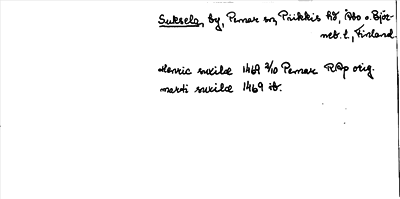 Suksela, by, Pemar sn, Piikkis hd, Åbo o. Björ-
neb. l., Finland.
Henric suxilæ 1469 3/10 Pemar RAp orig.
marti suxilæ 1469 ib.